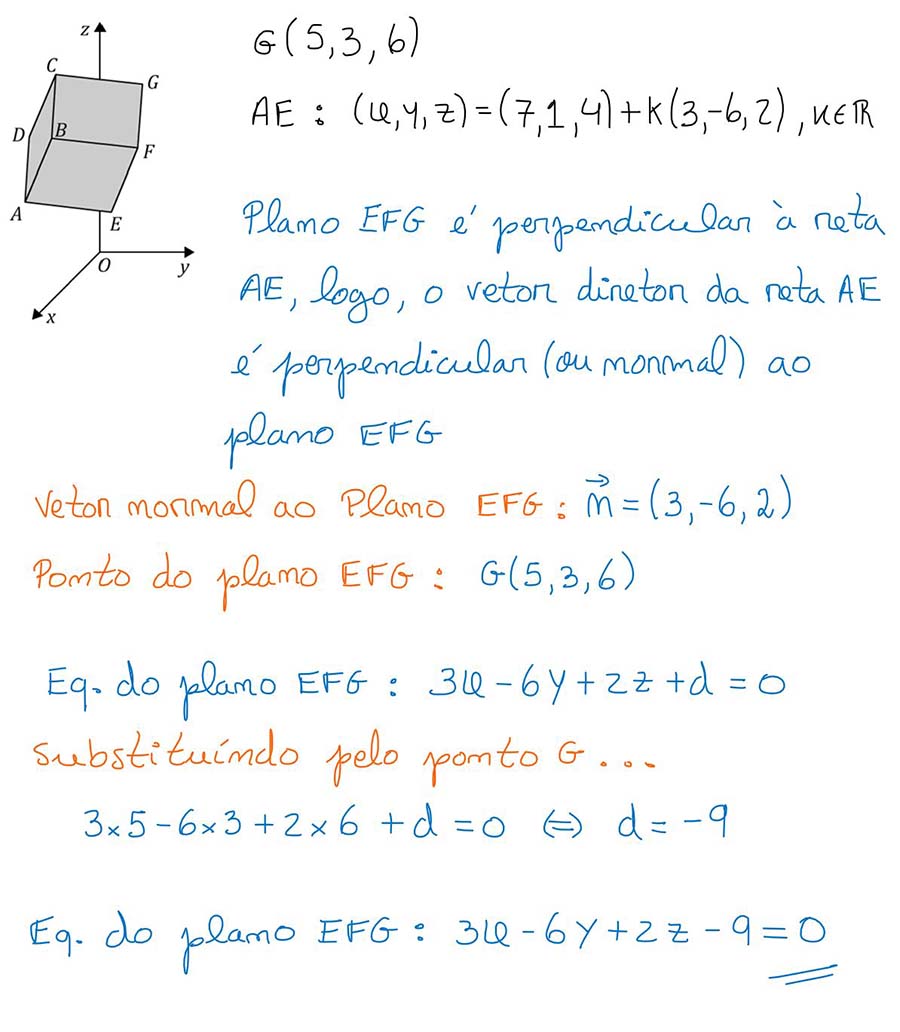 z
C
G
D
B
F
A
E
O
y
x
G(5,3,6)
AE : (x,y,z)=(7,1,4)+K(3,-6,2), K∈ℝ
Plano EFG é perpendicular à reta
AE, logo, o vetor diretor da reta AE
é perpendicular (ou normal) ao
plano EFG
Vetor normal ao Plano EFG: n⃗=(3,-6,2)
Ponto do plano EFG: G(5,3,6)
Eq. do plano EFG: 3x-6y+2z+d=0
Substituíndo pelo ponto G...
3×5-6×3+2×6+d=0 ⇔ d=-9
Eq. do plano EFG: 3x-6y+2z-9=0